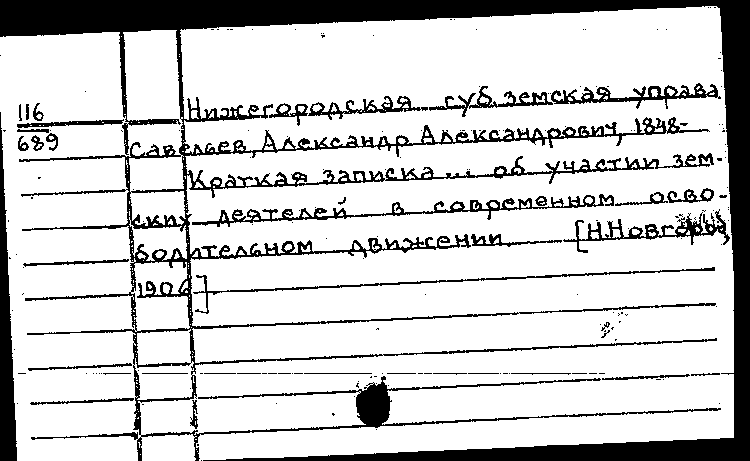 116
689
Нижегородская губ. земская управа
Савельев, Александр Александрович, 1848-
Краткая записка ... об участии зем-
ских деятелей в современном осво-
бодительном движении. [Н.Новгород,
1906]